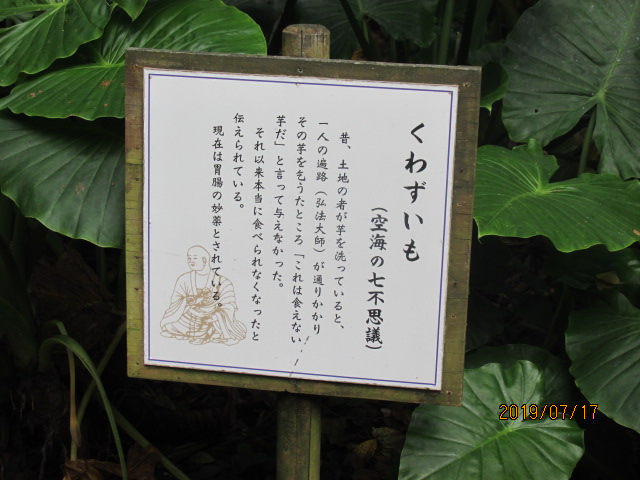 くわずいも
(空海の七不思議)
昔、土地の者が芋を洗っていると、
一人の遍路(弘法大師)が通りかかり
その芋を乞うたところ「これは食えない
芋だ」と言って与えなかった。
それ以来本当に食べられなくなったと
伝えられている。
現在は胃腸の妙薬とされている。
2019/07/17